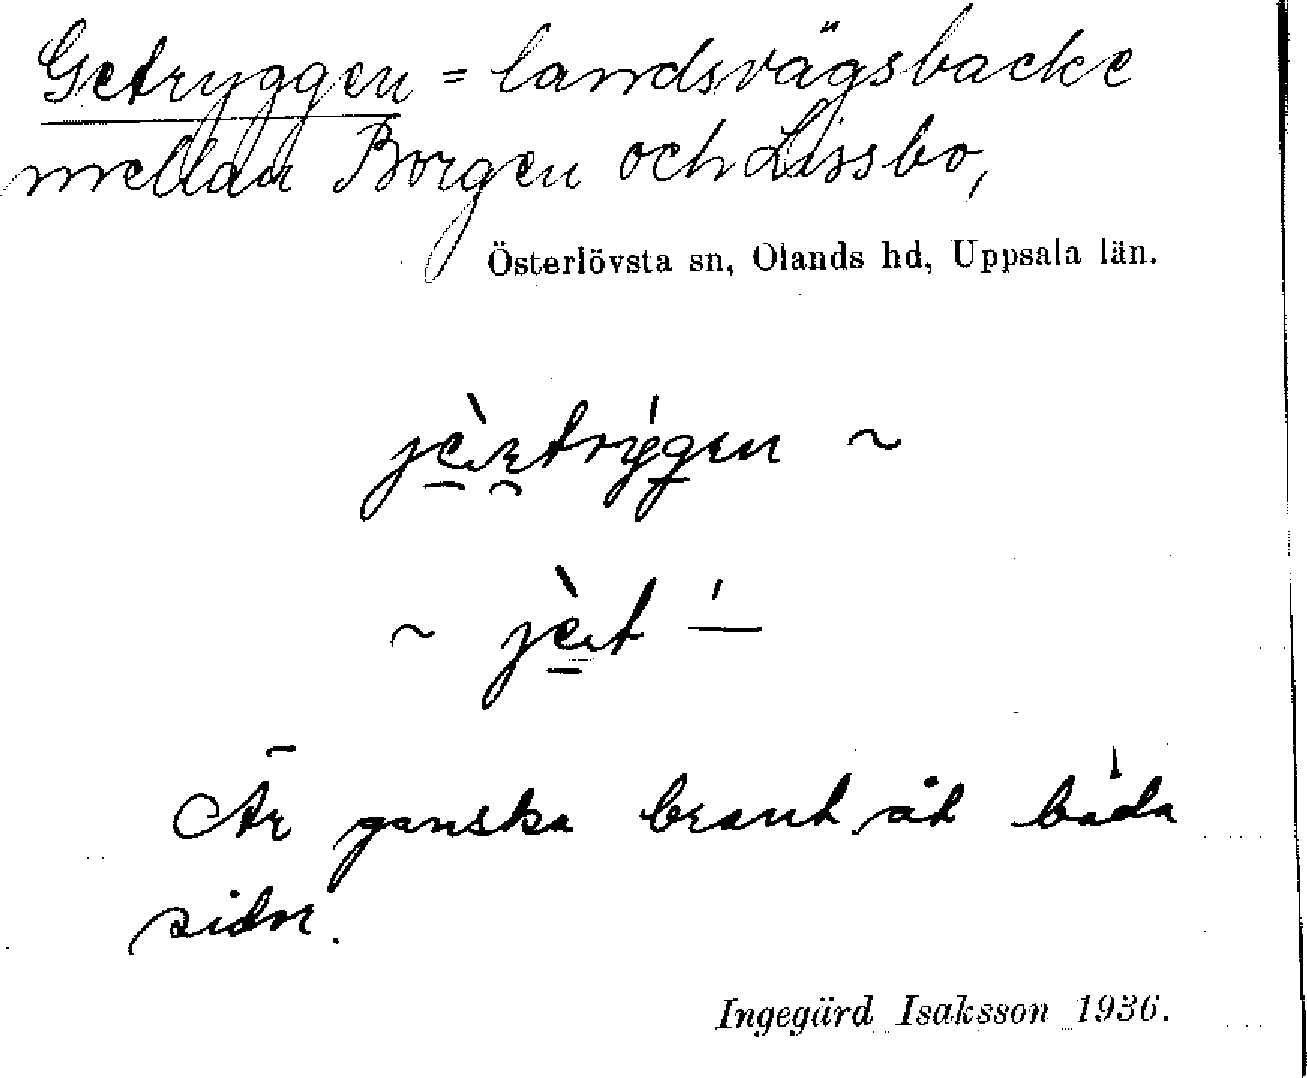 Getryggen = landsvägsbacke
mellan Borgen och Lissbo,
Österlövsta sn, Olands hd, Uppsala län.
~
~
Är ganska brant åt båda
sidor.
Ingegärd Isaksson 1936.